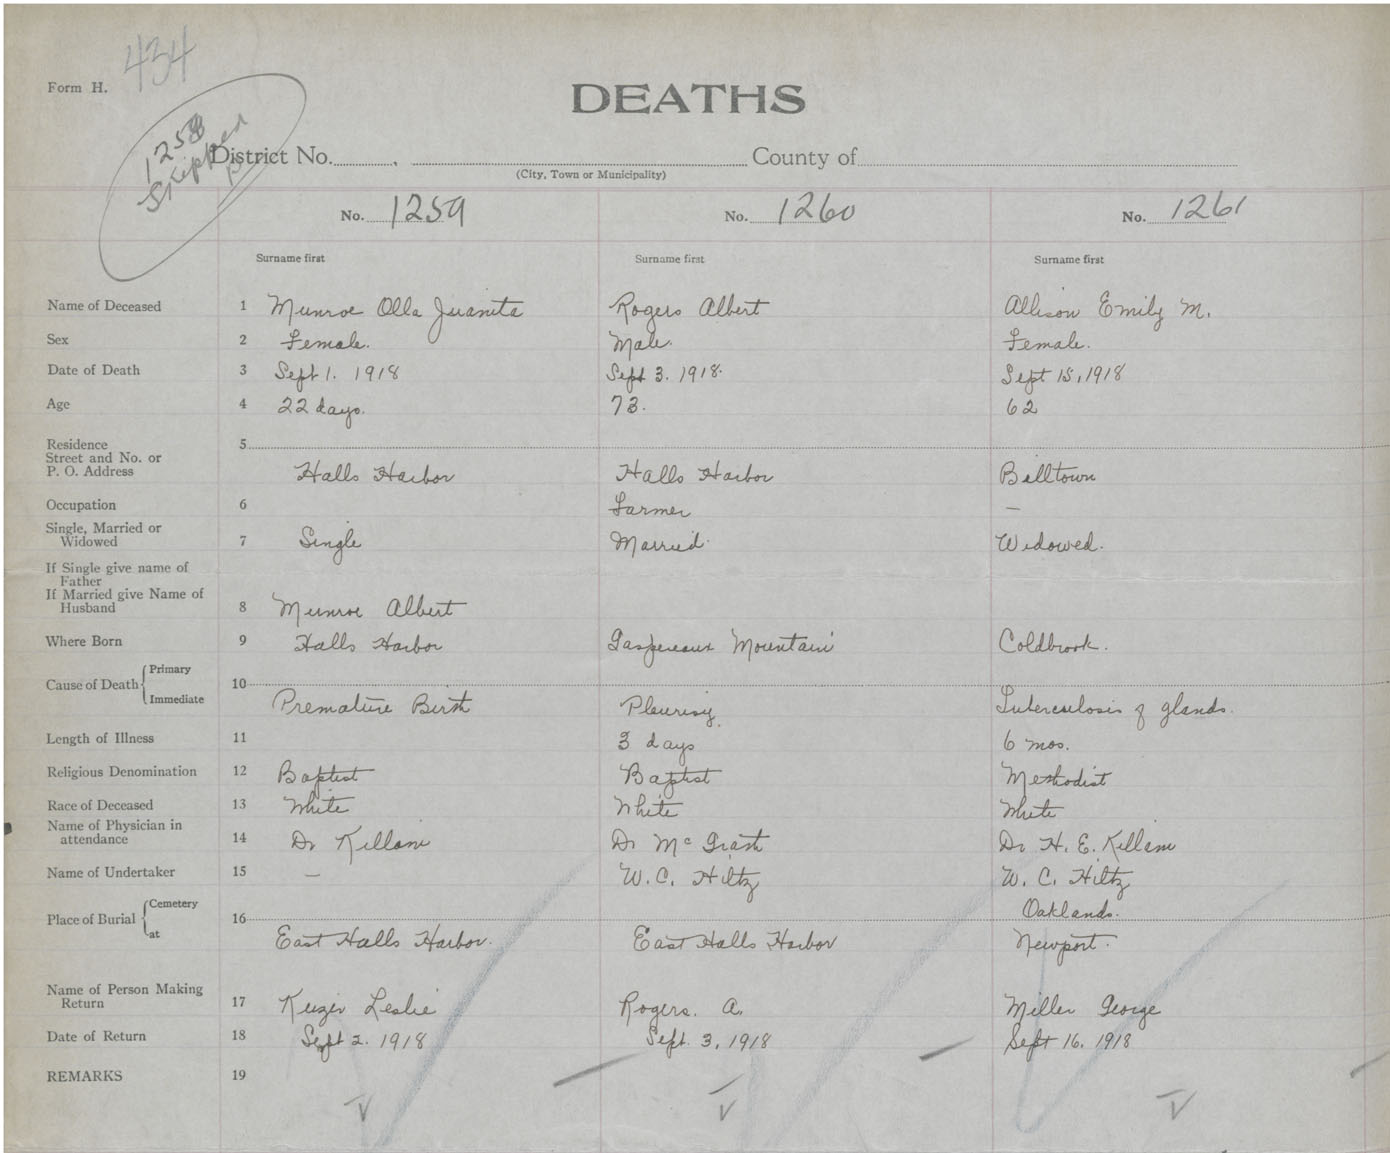 434
Form H.
DEATHS
1258
Skipped
District No. , County of
(City, Town or Municipality)
No. 1259 No. 1260 No. 1261
Surname first Surname first Surname first
Name of Deceased 1 Munroe Olla Juanita Rogers Albert Allison Emily M.
Sex 2 Female. Male. Female.
Date of Death 3 Sept 1. 1918 Sept 3. 1918. Sept 15, 1918
Age 4 22 days. 73. 62
Residence 5
Street and No. or
P. O. Address Halls Harbor Halls Harbor Billtown
Occupation 6 Farmer —
Single, Married or
Widowed 7 Single Married. Widowed.
If Single give name of
Father
If Married give Name of
Husband 8 Munroe Albert
Where Born 9 Halls Harbor Gaspereaux Mountain Coldbrook.
Cause of Death Primary
10
Immediate Premature Birth Pleurisy. Tuberculosis of glands.
Length of Illness 11 3 days 6 mos.
Religious Denomination 12 Baptist Baptist Methodist
Race of Deceased 13 White White White
Name of Physician in
attendance 14 Dr Killam Dr McGrath Dr. H. E. Killam
Name of Undertaker 15 — W. C. Hiltz W. C. Hiltz
Place of Burial Cemetery 16 Oaklands.
at East Halls Harbor. East Halls Harbor Newport.
Name of Person Making
Return 17 Keizer Leslie Rogers. A. Miller George
Date of Return 18 Sept 2. 1918 Sept. 3, 1918 Sept 16. 1918
REMARKS 19